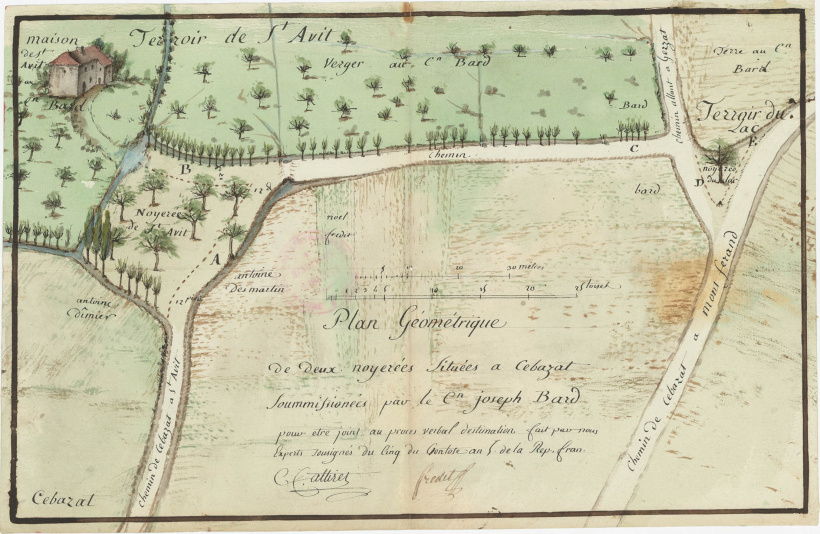 maison
de St
Avit
Terroir de St Avit
Verger au Cn Bard
Cn
Bard
Bard
Chemin allant a Gerzat
Terre au Cn
Bard
Terroir du
Lac
E
C
D
A
noyerée
du Lac
Chemin
B
Noyerée
de St Avit
A
bard
noel
fredit
antoine
Desmartin
antoine
Dimier
5
10
20 metres
1 2 3 4 5
10
15
20
25 toises
Plan Géométrique
de Deux noyerées Situées a Cebazat
Soummissionées par le Cn joseph Bard
pour etre joint au procès verbal destimation fait par nous
Experts Soussignés du Cinq du an 5. de la Rep. fran.
Chemin de Cebazat a St Avit
Chemin de Cebazat a mont ferand
Cebazat